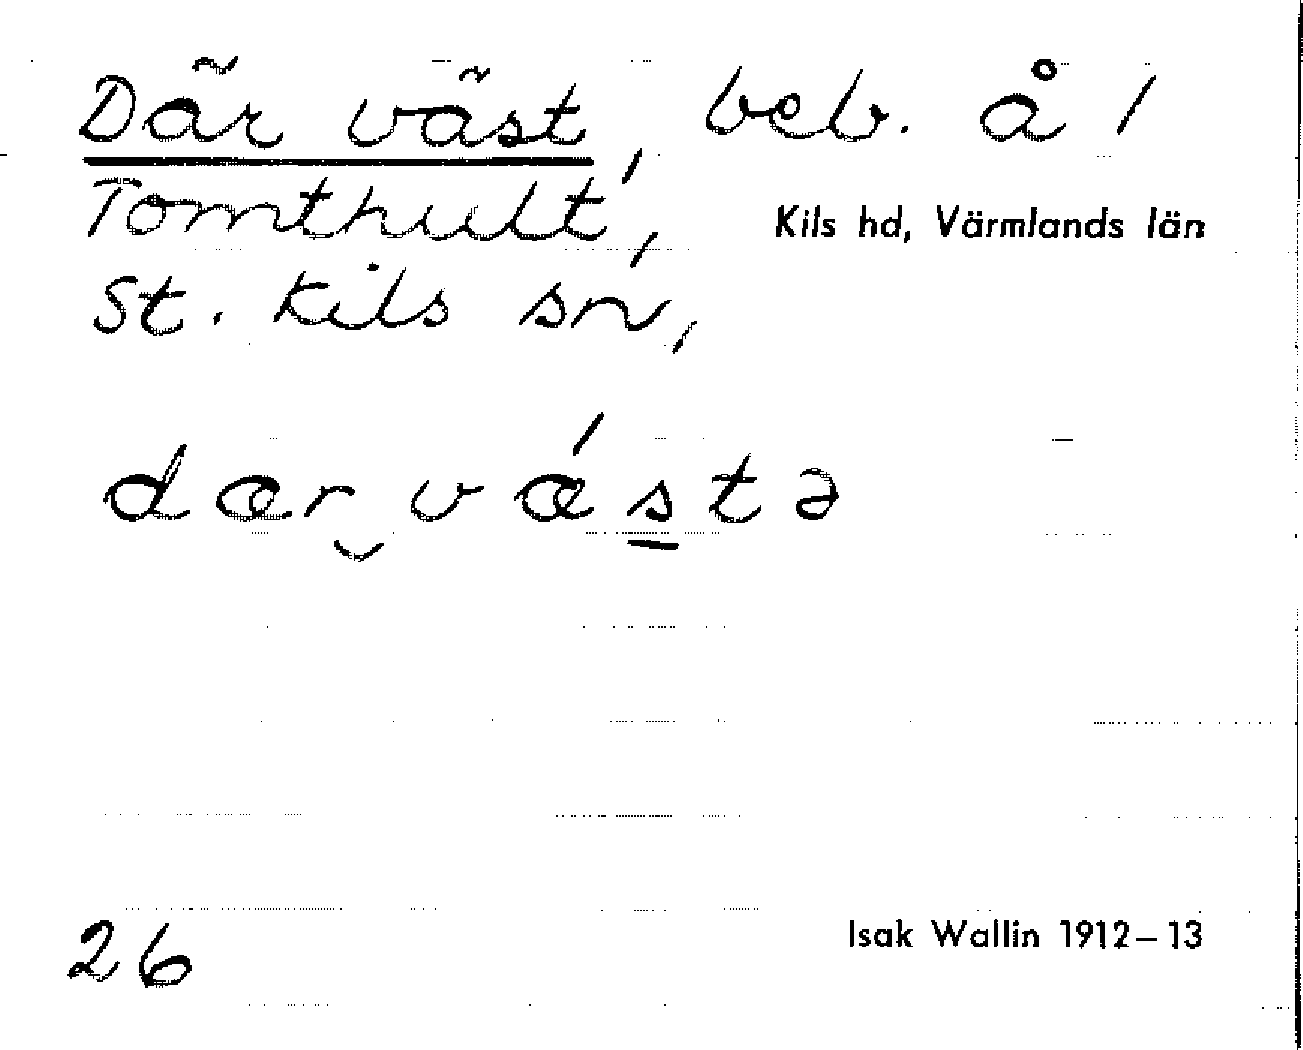 Där väst, beb. å 1
Tomthult,
Kils hd, Värmlands län
St. Kils sn,
dær vǽstə
26
Isak Wallin 1912–13